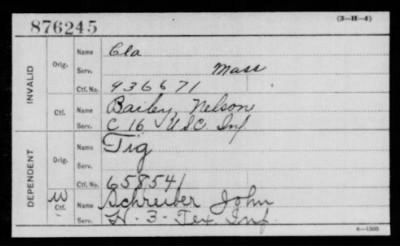 (3-H-4)
876245
INVALID
Orig.
Name Cla
Serv. Mass
Ctf. No. 936671
Ctf.
Name Bailey, Nelson
Serv. C 16 USC Inf
DEPENDENT
Orig.
Name Tig
Serv.
Ctf. No. 658541
W
Ctf.
Name Schreiber John
Serv. H-3-Tex Inf.